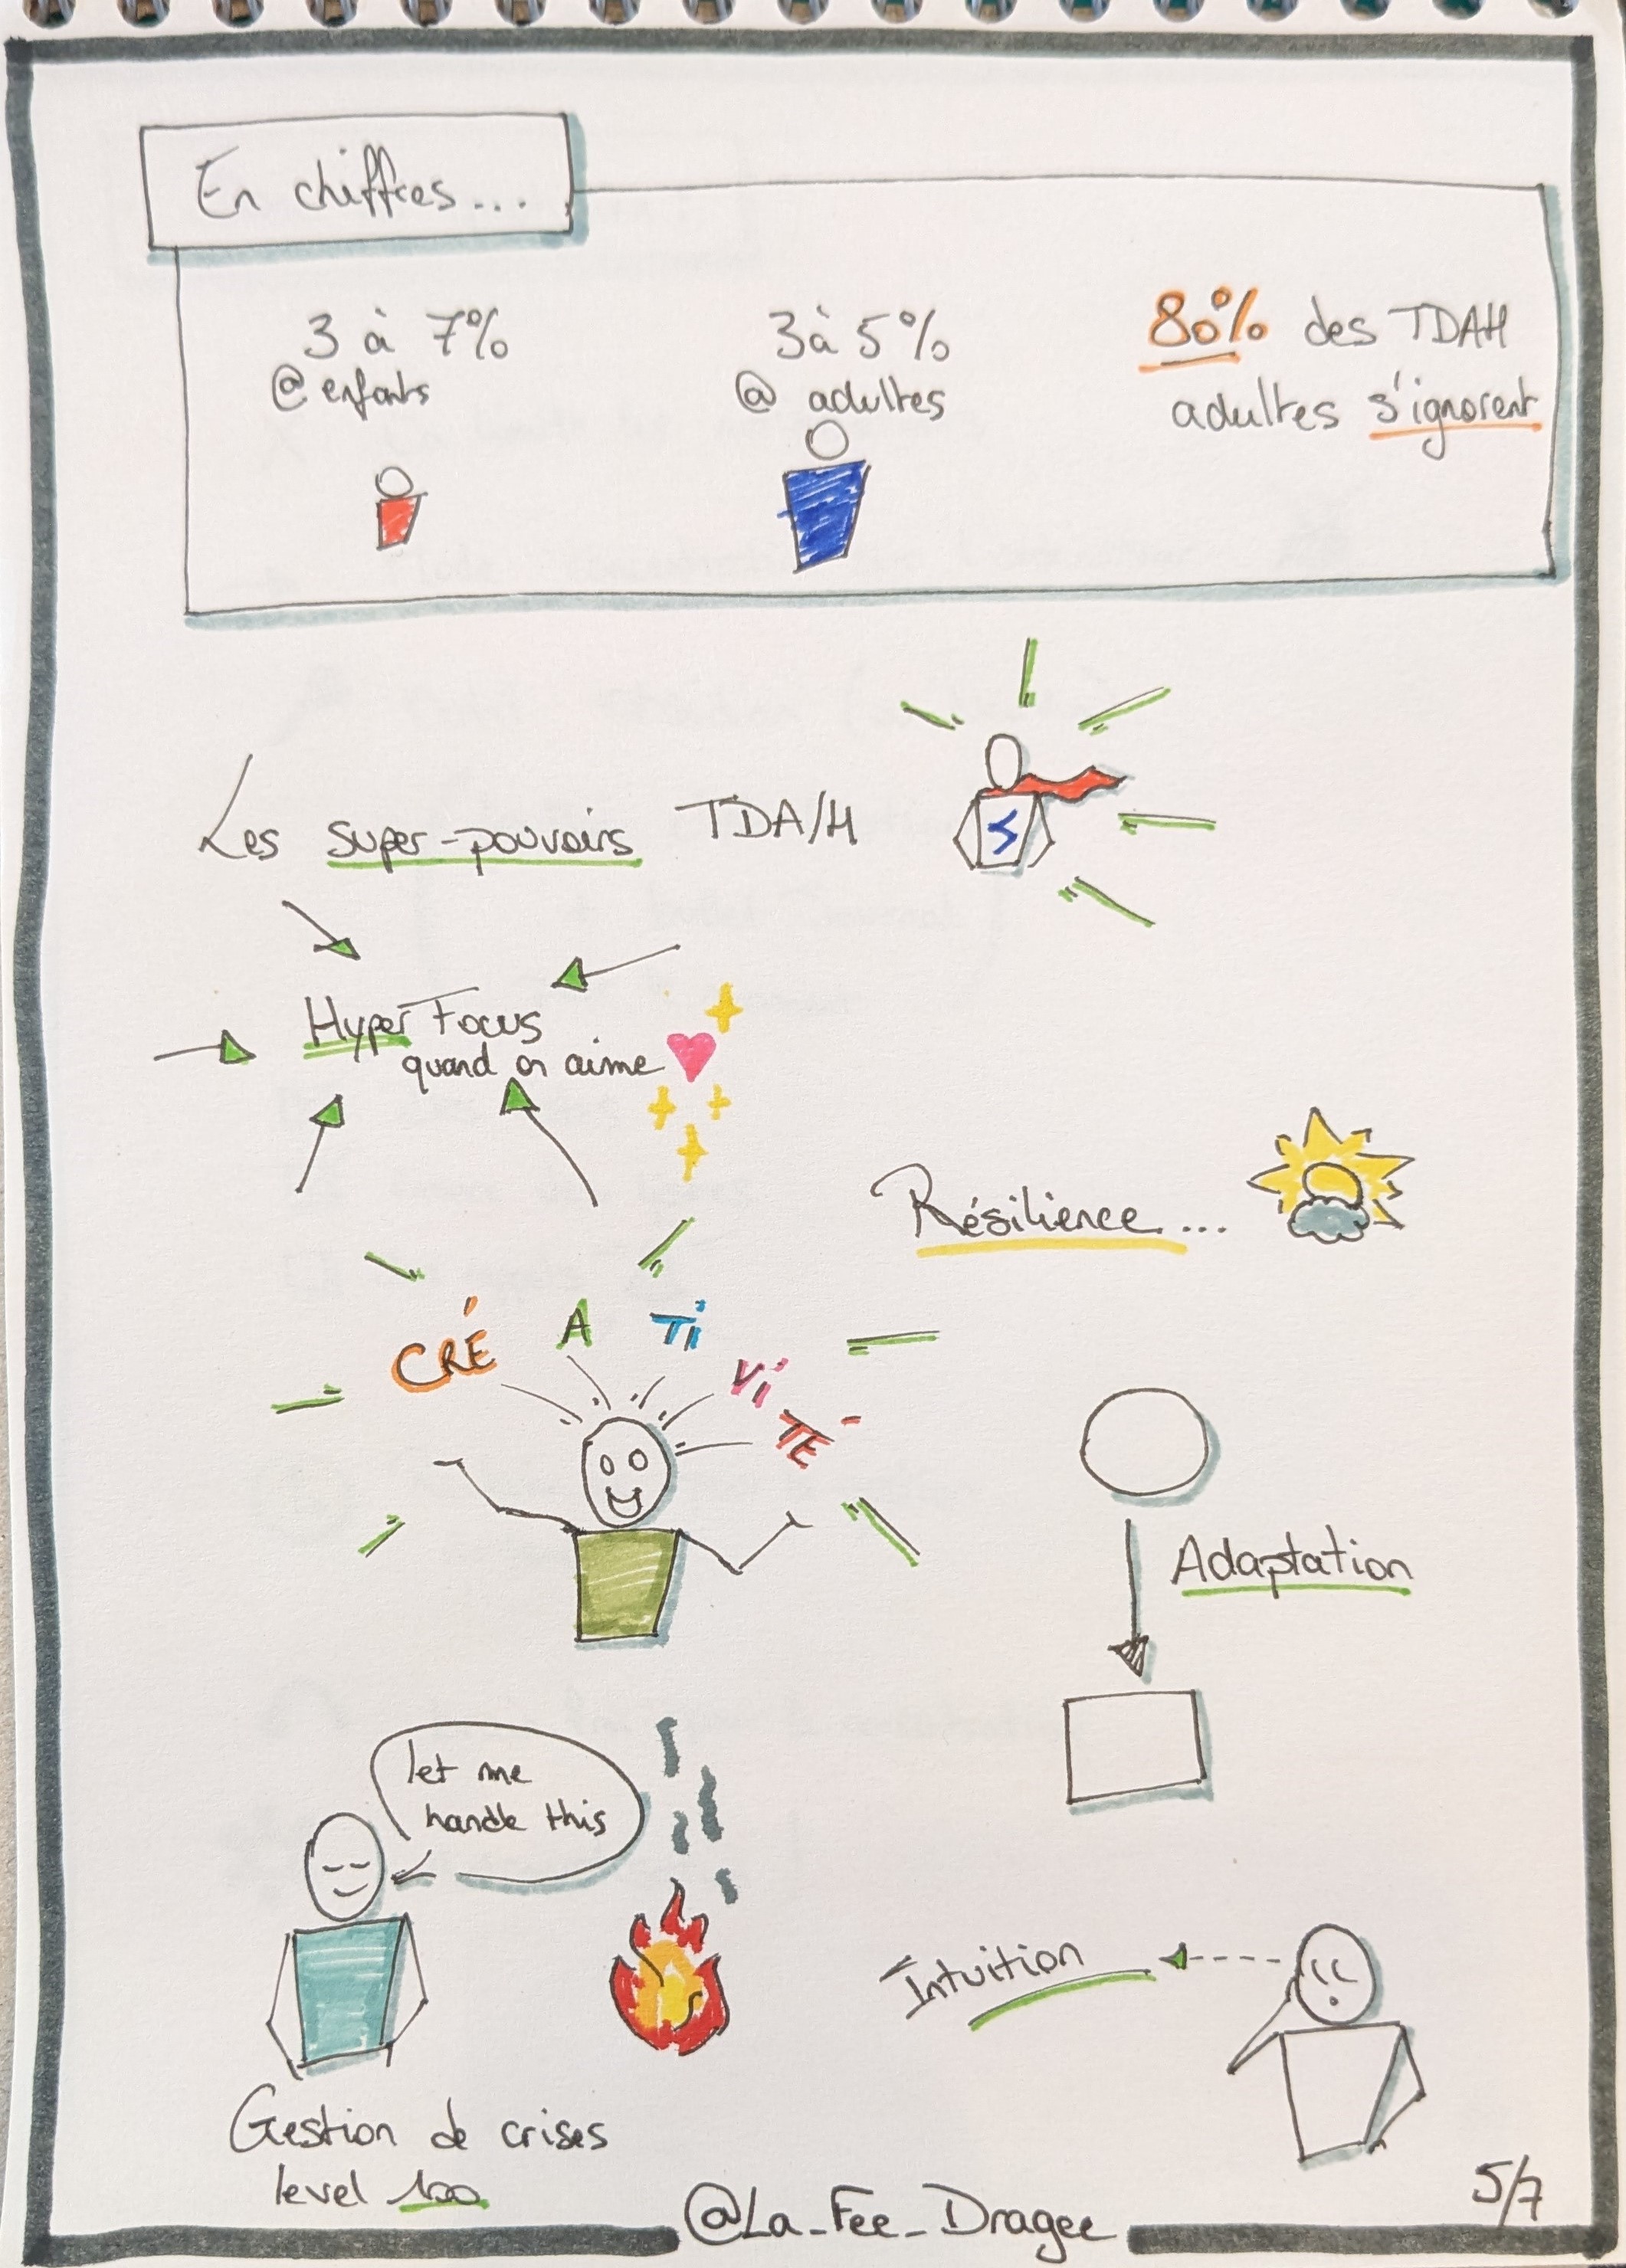 En chiffres...
3 à 7%
@ enfants
3 à 5%
@ adultes
80% des TDAH
adultes s'ignorent
Les super-pouvoirs TDA/H
Hyper Focus
quand on aime
Résilience...
CRÉ A Ti Vi TÉ
Adaptation
let me
handle this
Gestion de crises
level 100
Intuition
@La_Fee_Dragee
5/7